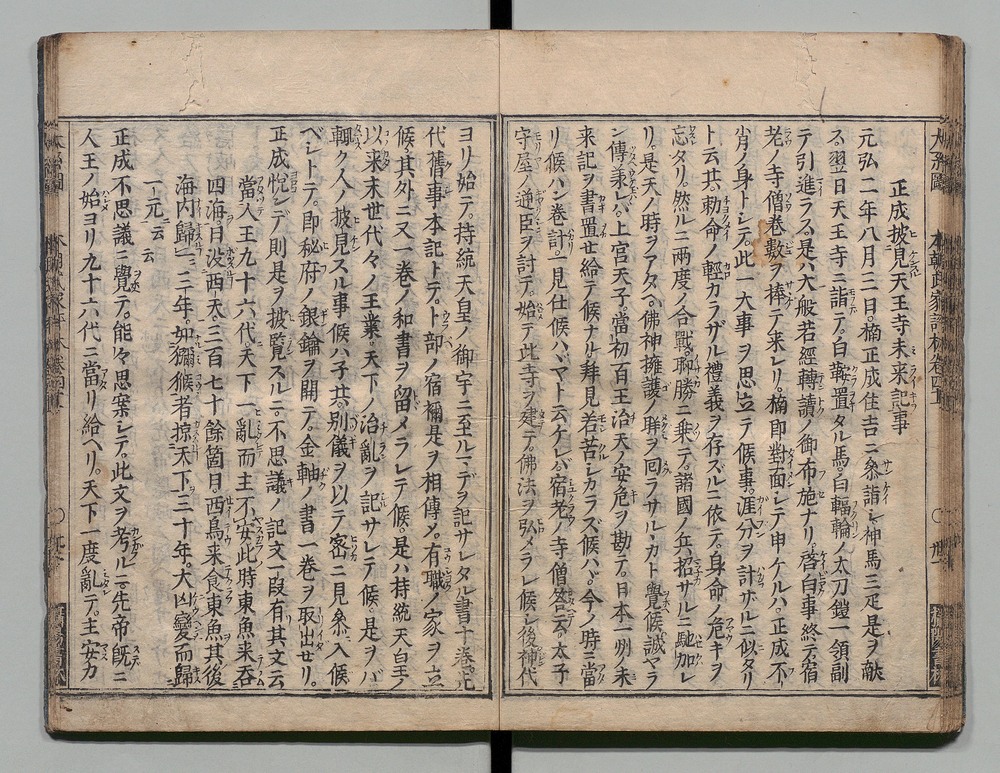 正成披見天王寺未来記事
元弘二年八月三日。楠正成住吉ニ参詣シ神馬三疋是ヲ獻
ル。翌日天王寺ニ詣テ。白鞍置タル馬。白輻輪ノ太刀鎧一領副
テ引進ラル。是ハ大般若經轉讀ノ御布施ナリ。啓白事終テ宿
老ノ寺僧巻數ヲ捧テ来レリ。楠即對面シテ申ケルハ。正成不
肖ノ身トシテ。此一大事ヲ思立テ候事。涯分ヲ計ザルニ似タリ
ト云共。勅命ノ輕カラザル禮義ヲ存ズルニ依テ。身命ノ危キヲ
忘タリ。然ルニ兩度ノ合戰。聊勝ニ乗テ。諸國ノ兵招サルニ馳加レ
リ。是天ノ時ヲアタヘ。佛神擁護ノ眸ヲ回ラサルヽカト覺候。誠ヤラ
ン傳承レバ。上宮天子。當初百王治天ノ安危ヲ勘テ。日本一州ノ未
来記ヲ書置セ給テ候ナル。拜見若苦シカラズ候ハバ。今ノ時ニ當
リ候ハン巻計。一見仕候ハバヤト云ケレバ。宿老ノ寺僧答云。太子
守屋ノ逆臣ヲ討テ。始テ此寺ヲ建テ。佛法ヲ弘メラレ候シ後。神代
ヨリ始テ。持統天皇ノ御宇ニ至ルマデヲ記サレタル書十巻ヲバ先
代舊事本記トテ。卜部ノ宿禰是ヲ相傳メ。有職ノ家ヲ立
候。其外ニ又一巻ノ和書ヲ留メラレテ候。是ハ持統天皇ノ
以来末世代々ノ王業。天下ノ治亂ヲ記サレテ候。是ヲバ
輙ク人ノ披見スル事候ハ子共。別儀ヲ以テ密ニ見参ニ入候
ベシトテ。即秘府ノ銀鑰ヲ開テ。金軸ノ書一巻ヲ取出セリ。
正成悦ンデ則是ヲ披覧スルニ。不思議ノ記文一段有其文云
當人王九十六代。天下一亂而主不安此時東魚来吞
四海。日没西天三百七十餘箇日。西鳥来食東魚其後
海内歸一三年。如獼猴者掠天下三十年。大凶變而歸
一元云云
正成不思議ニ覺テ。能々思案シテ。此文ヲ考ルニ。先帝既ニ
人王ノ始ヨリ九十六代ニ當リ給ヘリ。天下一度亂テ。主安カ